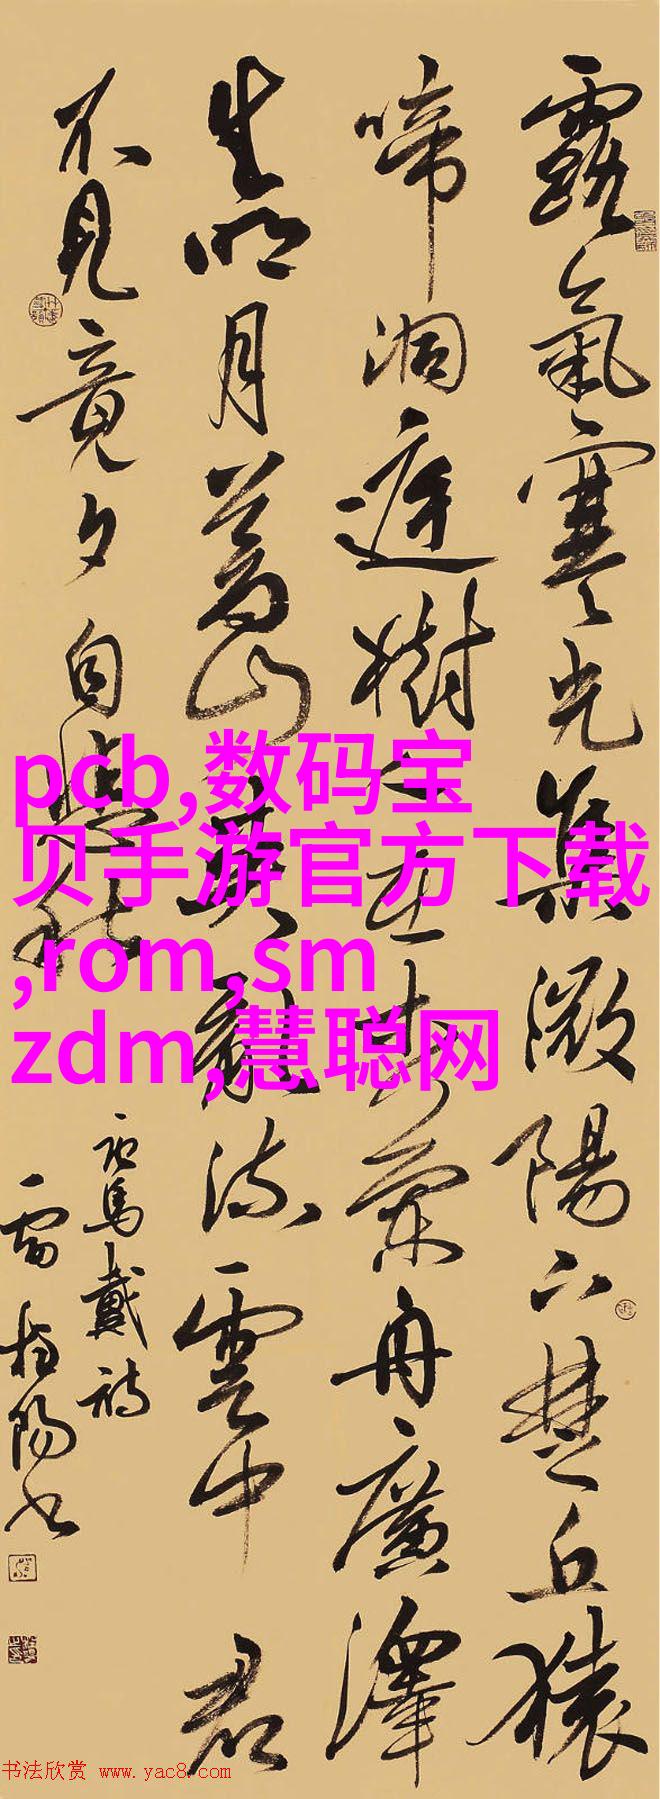 露氣寒光集微陽下楚丘猿
啼洞庭樹人在木蘭舟廣澤
生明月蒼山夾亂流雲中君
不見竟夕自悲秋
馬戴詩
雷 陽書
pcb,数码宝
贝手游官方下载
,rom,sm
zdm,慧聪网
书法欣赏 www.yac8.com